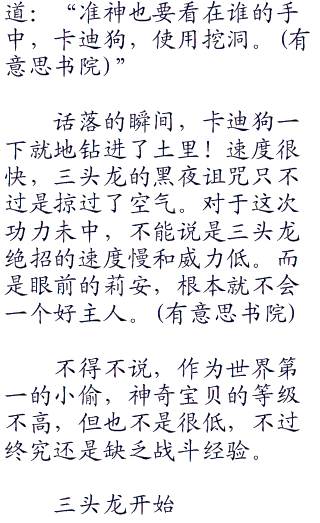 道：“准神也要看在谁的手
中，卡迪狗，使用挖洞。(有
意思书院)”
话落的瞬间，卡迪狗一
下就地钻进了土里！速度很
快，三头龙的黑夜诅咒只不
过是掠过了空气。对于这次
功力未中，不能说是三头龙
绝招的速度慢和威力低。而
是眼前的莉安，根本就不会
一个好主人。(有意思书院)
不得不说，作为世界第
一的小偷，神奇宝贝的等级
不高，但也不是很低，不过
终究还是缺乏战斗经验。
三头龙开始